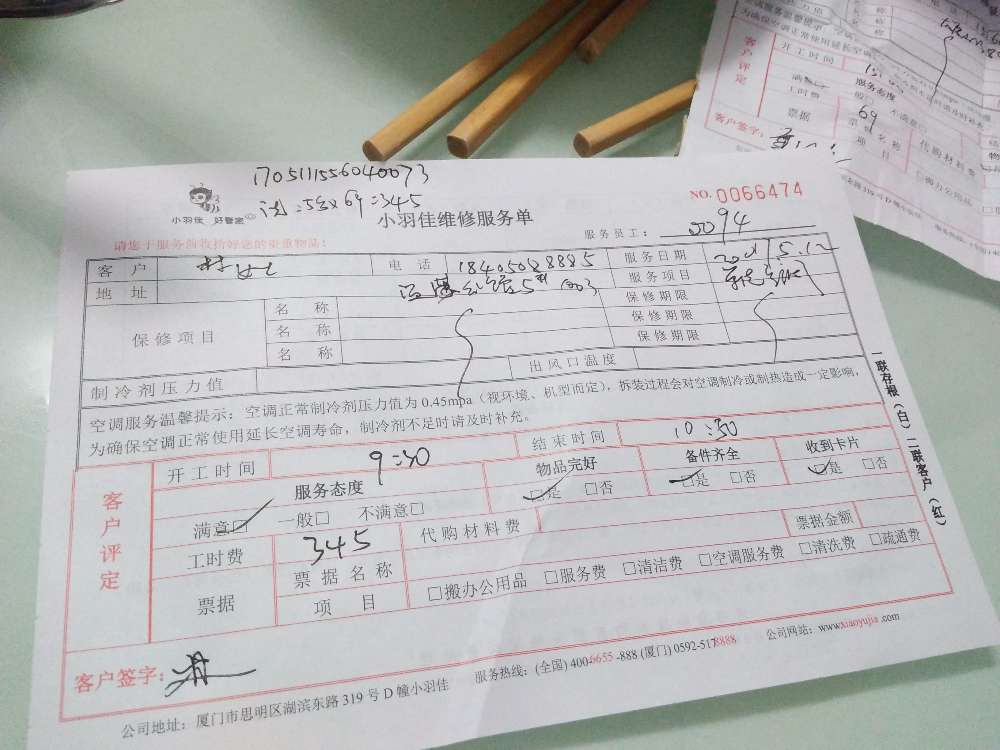 1705111556040073
NO.0066474
小羽佳 好管家
5台×69=345
小羽佳维修服务单
服务员工: 0094
请您于服务前收拾好您的重要物品:
客户 电话 18405088885 服务日期 2017.5.12
地址 服务项目
保修项目 名称 保修期限
名称 保修期限
名称 保修期限
制冷剂压力值 出风口温度
空调服务温馨提示:空调正常制冷剂压力值为0.45mpa(视环境、机型而定),拆装过程会对空调制冷或制热造成一定影响,
为确保空调正常使用延长空调寿命,制冷剂不足时请及时补充。
客户评定
开工时间 9:30 结束时间 10:30
服务态度 物品完好 备件齐全 收到卡片
满意□ 一般□ 不满意□ □是 □否 □是 □否 □是 □否
工时费 345 代购材料费 票据金额
票据 票据名称
项目 □搬办公用品 □服务费 □清洁费 □空调服务费 □清洗费 □疏通费
客户签字:
服务热线:(全国) 400-6655-888 (厦门) 0592-5178888 公司网站:www.xiaoyujia.com
公司地址:厦门市思明区湖滨东路319号D幢小羽佳
一联存根(白)二联客户(红)
为确保空调正常使用延长空调
客户评定
开工时间
服务态度
满意□
一般□ 不满意□
工时费 69
代购材料费
票据
票据名称
项目
□搬办公用品
客户签字: